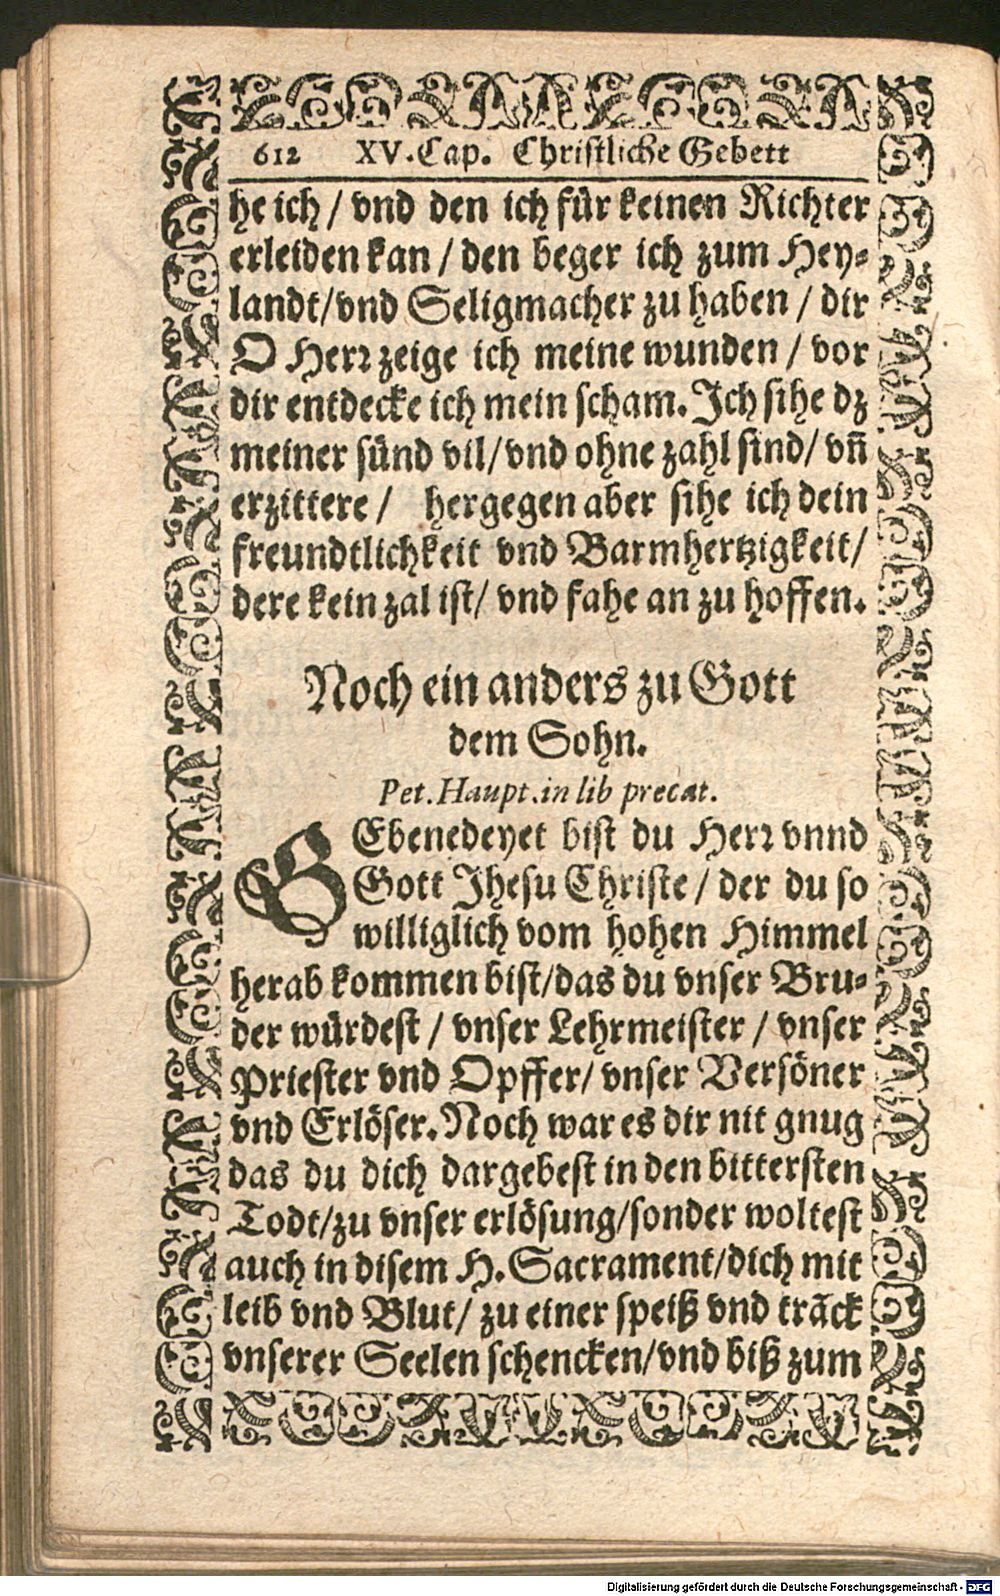 612 XV. Cap. Christliche Gebett
he ich / vnd den ich für keinen Richter
erleiden kan / den beger ich zum Hey-
landt/vnd Seligmacher zu haben / dir
O Herr zeige ich meine wunden / vor
dir entdecke ich mein scham. Ich sihe dz
meiner sünd vil/vnd ohne zahl sind/ vn̄
erzittere / hergegen aber sihe ich dein
freundtlichkeit vnd Barmhertzigkeit/
dere kein zal ist/ vnd fahe an zu hoffen.
Noch ein anders zu Gott
dem Sohn.
Pet. Haupt. in lib precat.
GEbenedeyet bist du Herr vnnd
Gott Jhesu Christe / der du so
williglich vom hohen Himmel
herab kommen bist/das du vnser Bru-
der würdest / vnser Lehrmeister / vnser
Priester vnd Opffer/ vnser Versöner
vnd Erlöser. Noch war es dir nit gnug
das du dich dargebest in den bittersten
Todt/zu vnser erlösung/sonder woltest
auch in disem H. Sacrament/dich mit
leib vnd Blut/ zu einer speiß vnd trãck
vnserer Seelen schencken/vnd biß zum
Digitalisierung gefördert durch die Deutsche Forschungsgemeinschaft - DFG